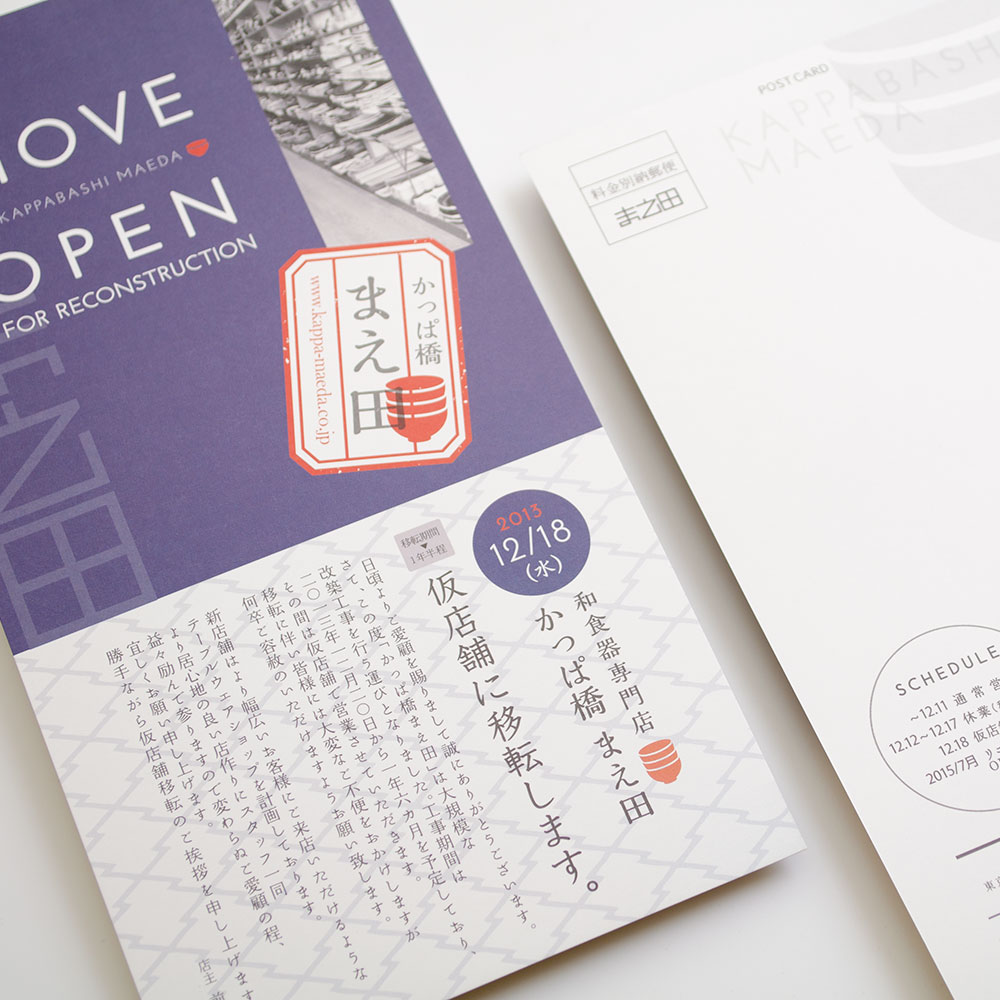 MOVE
KAPPABASHI MAEDA
OPEN
FOR RECONSTRUCTION
かっぱ橋
まえ田
www.kappa-maeda.co.jp
2013
12/18
(水)
移転期間
1年半程
和食器専門店
かっぱ橋 まえ田
仮店舗に移転します。
日頃よりご愛顧を賜りまして誠にありがとうございます。
さて、この度「かっぱ橋まえ田」は大規模な
改築工事を行う運びとなりました。工事期間は
二〇一三年一二月二〇日から一年六カ月を予定しており、
その間は仮店舗で営業させていただきます。
移転に伴い皆様には大変なご不便をおかけしますが
何卒ご容赦のいただけますようお願い致します。
新店舗はより幅広いお客様にご来店いただけるような
テーブルウェアショップを計画しております。
より居心地の良い店作りにスタッフ一同、
益々励んで参りますので変わらぬご愛顧の程、
宜しくお願い申し上げます。
勝手ながら仮店舗移転のご挨拶を申し上げます
店主 前
POST CARD
KAPPABASHI
MAEDA
料金別納郵便
まえ田
SCHEDULE
~12.11 通常営
12.12~12.17 休業(
12.18 仮店舗
2015/7月 リニ